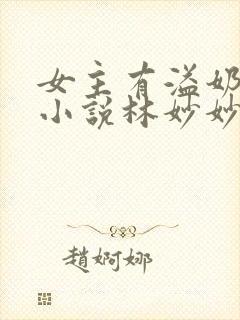 女主有溢奶
小说林妙妙
赵婀娜